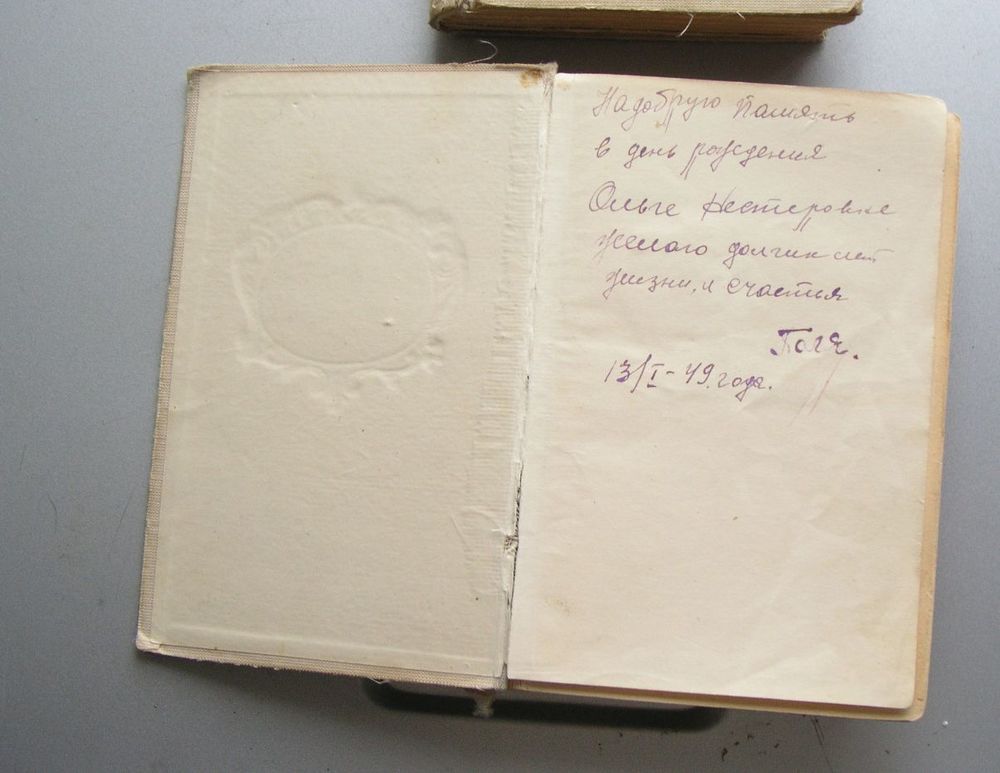 На добрую память
в день рождения
Ольге Нестеровне
желаю долгих лет
жизни, и счастия
13/I-49. года.